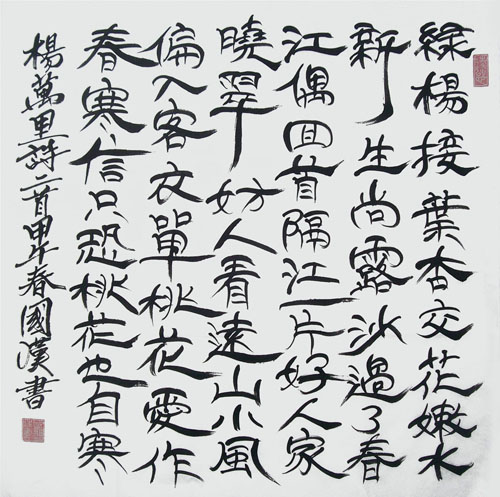 綠楊接葉杏交花嫩水
新生尚露沙過了春
江偶回首隔江一片好人家
曉翠妨人看遠山小風
偏入客衣單桃花愛作
春寒信只恐桃花也自寒
楊萬里詩二首甲午春國漢書